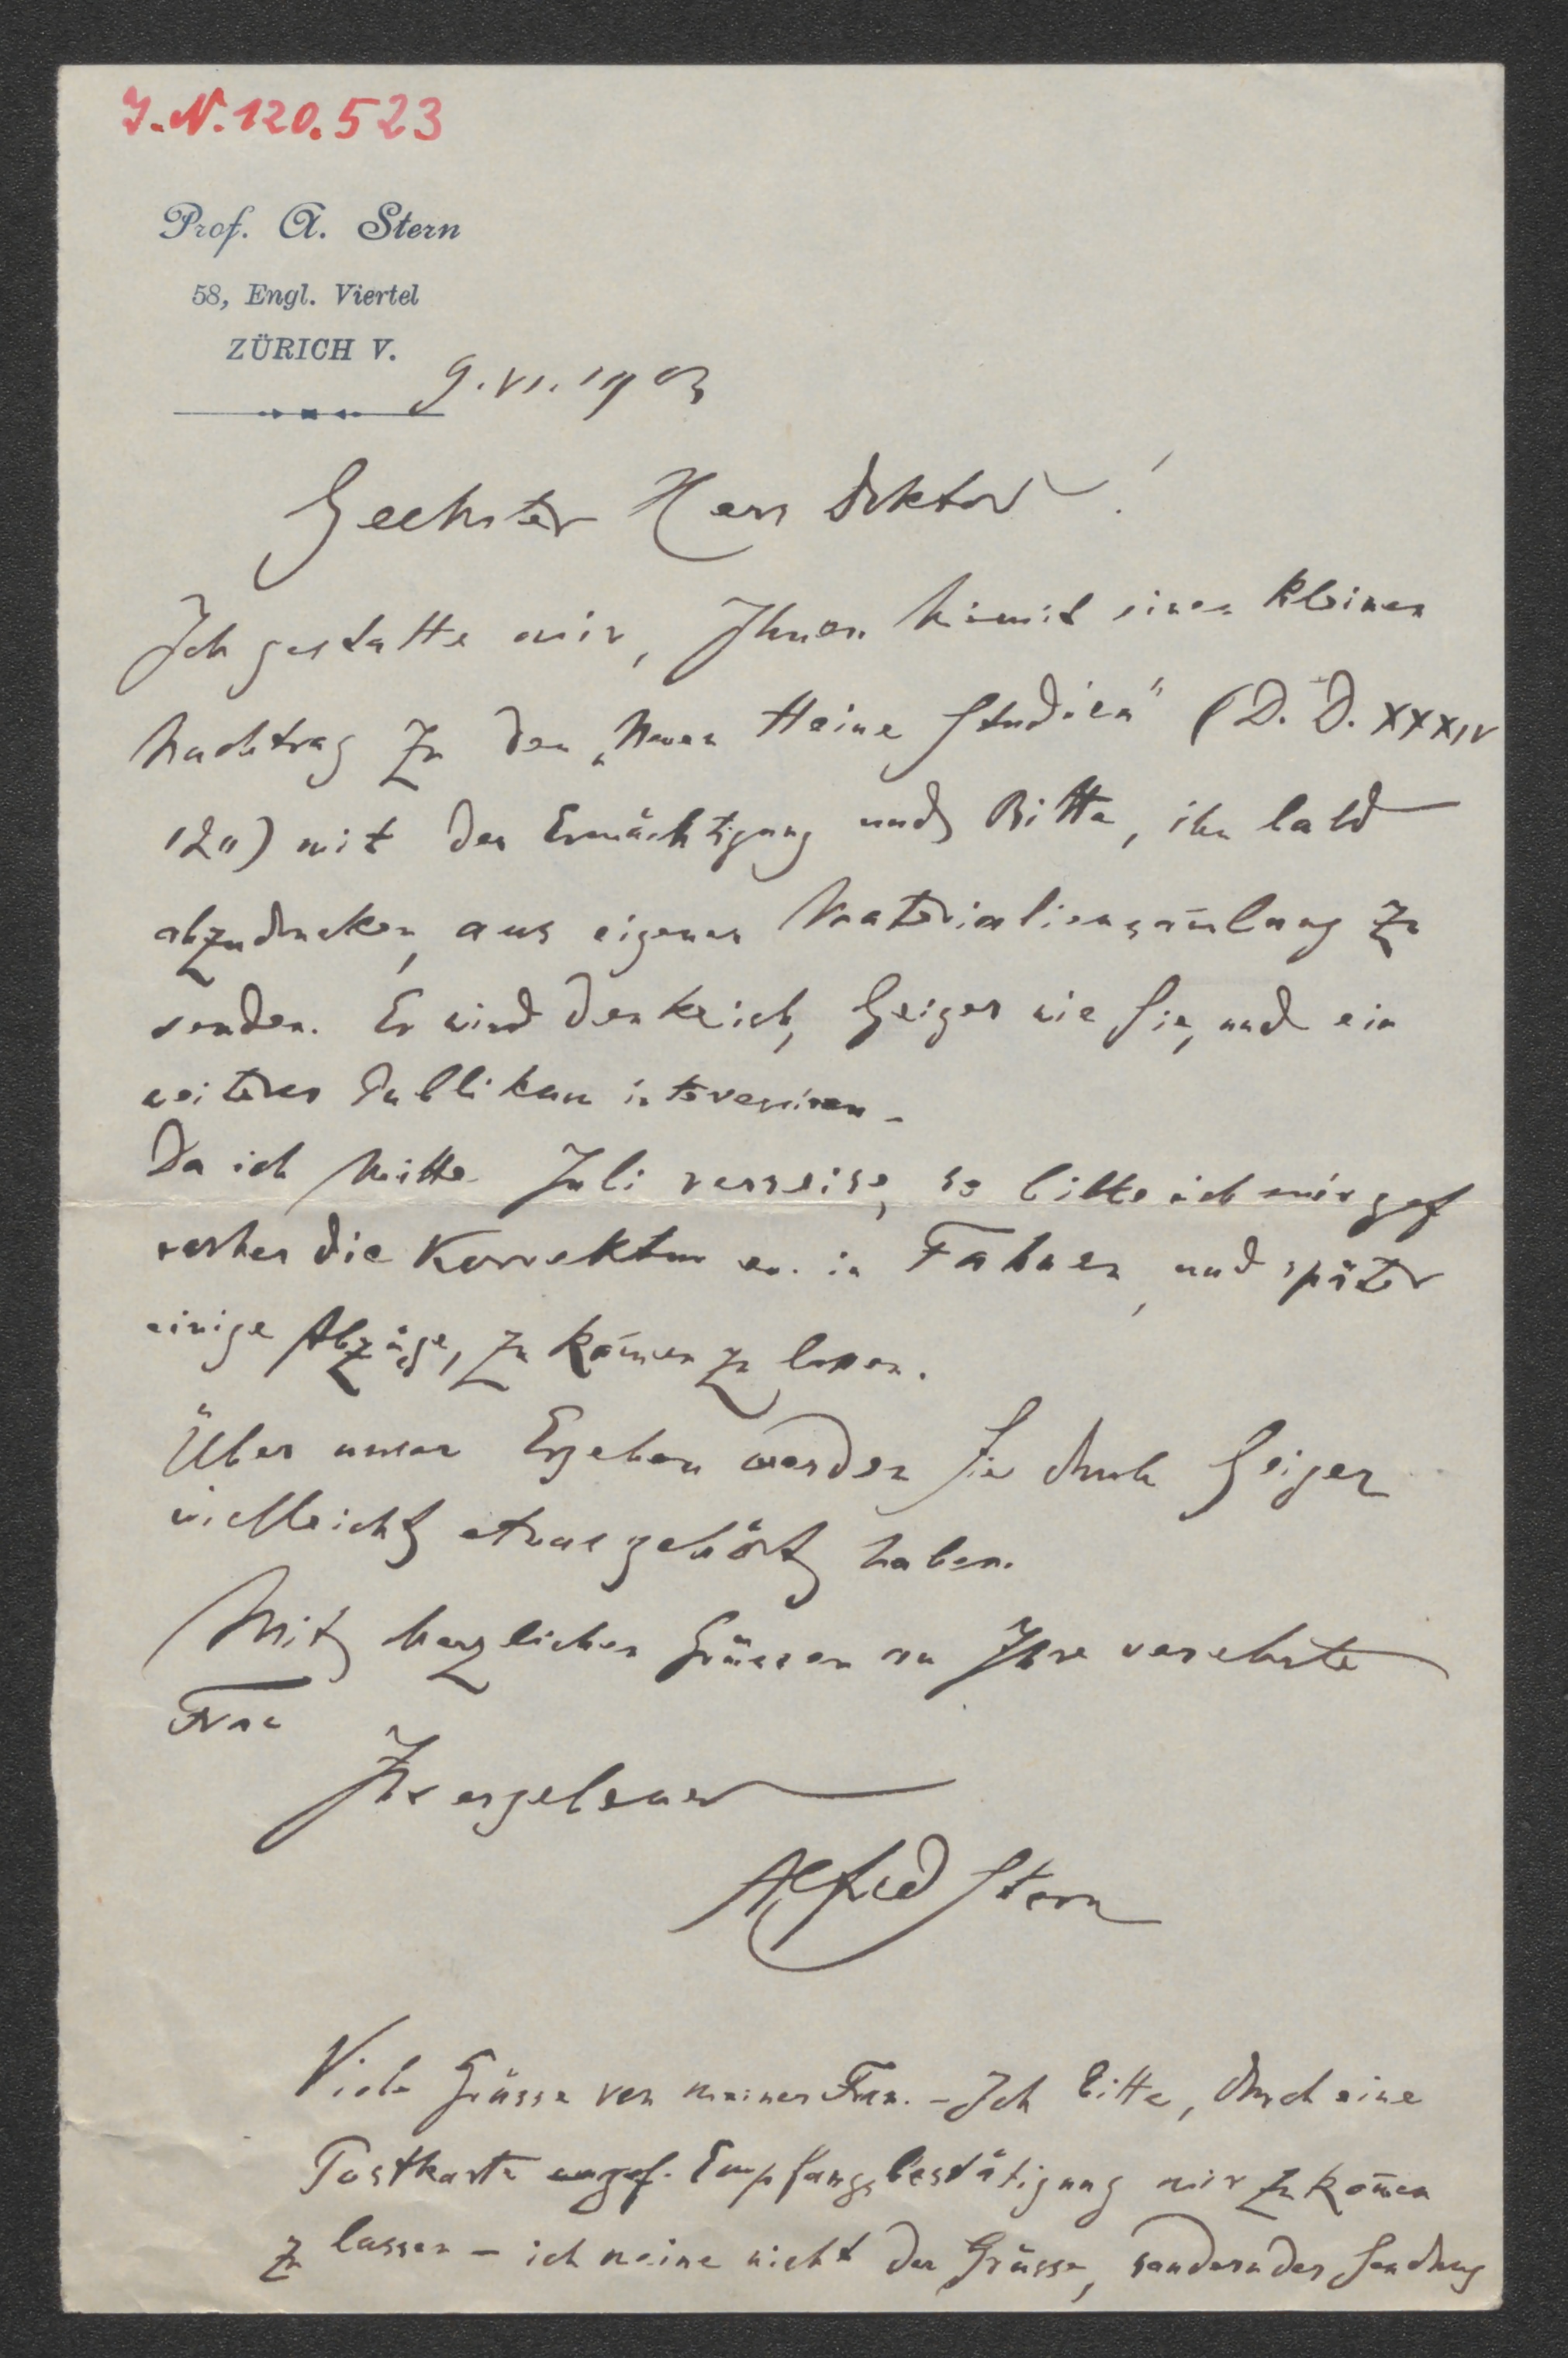 J.N. 120.523
Prof. A. Stern
58, Engl. Viertel
ZÜRICH V.
9. VI. 1903
Geehrter Herr Doktor!
Ich gestatte mir, Ihnen hiemit einen kleinen
Nachtrag zu den „Neuen Heine Studien" (D. D. XXXIV
12 ) mit der Ermächtigung und Bitte, ihn bald
abzudrucken, aus eigener Materialiensam̄lung zu
senden. Er wird denke ich, Geiger wie Sie, und ein
weiteres Publikum interessiren.
Da ich Mitte Juli verreise, so bitte ich mir gef
vorher die Korrektur ev. in Fahnen, und später
einige Abzüge, zu kom̄en zu lassen.
Über unser Ergehen werden Sie durch Geiger
vielleicht etwas gehört haben.
Mit herzlichen Grüssen an Ihre verehrte
Frau
Ihr ergebener
Alfred Stern
Viele Grüsse von meiner Frau. – Ich bitte, durch eine
Postkarte gef. Empfangsbestätigung mir zu kom̄en
zu lassen – ich meine nicht der Grüsse, sondern der Sendung